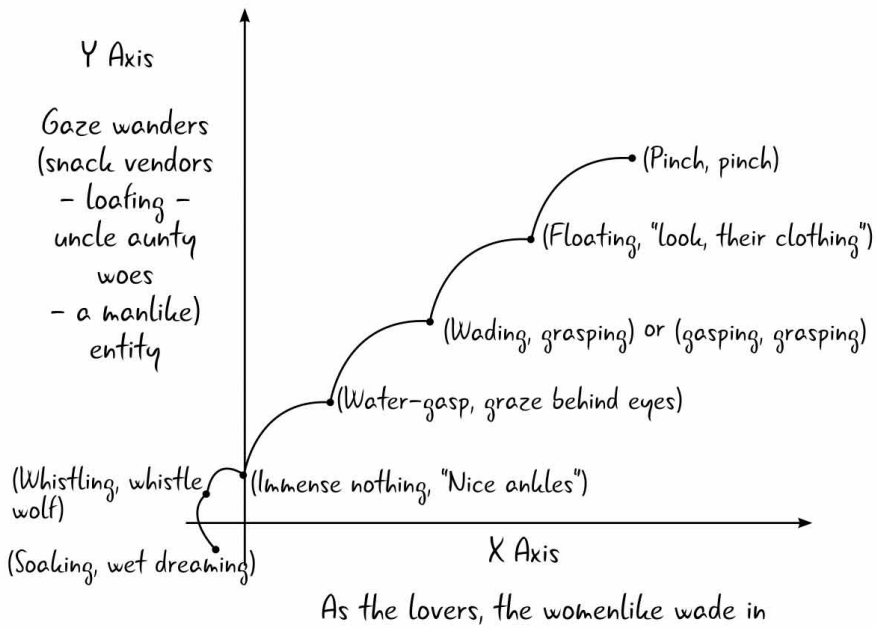 Y Axis
Gaze wanders
(snack vendors
- loafing -
uncle aunty
woes
- a manlike)
entity
(Pinch, pinch)
(Floating, "look, their clothing")
(Wading, grasping) or (gasping, grasping)
(Water-gasp, graze behind eyes)
(Whistling, whistle
wolf)
(Immense nothing, "Nice ankles")
(Soaking, wet dreaming)
X Axis
As the lovers, the womenlike wade in